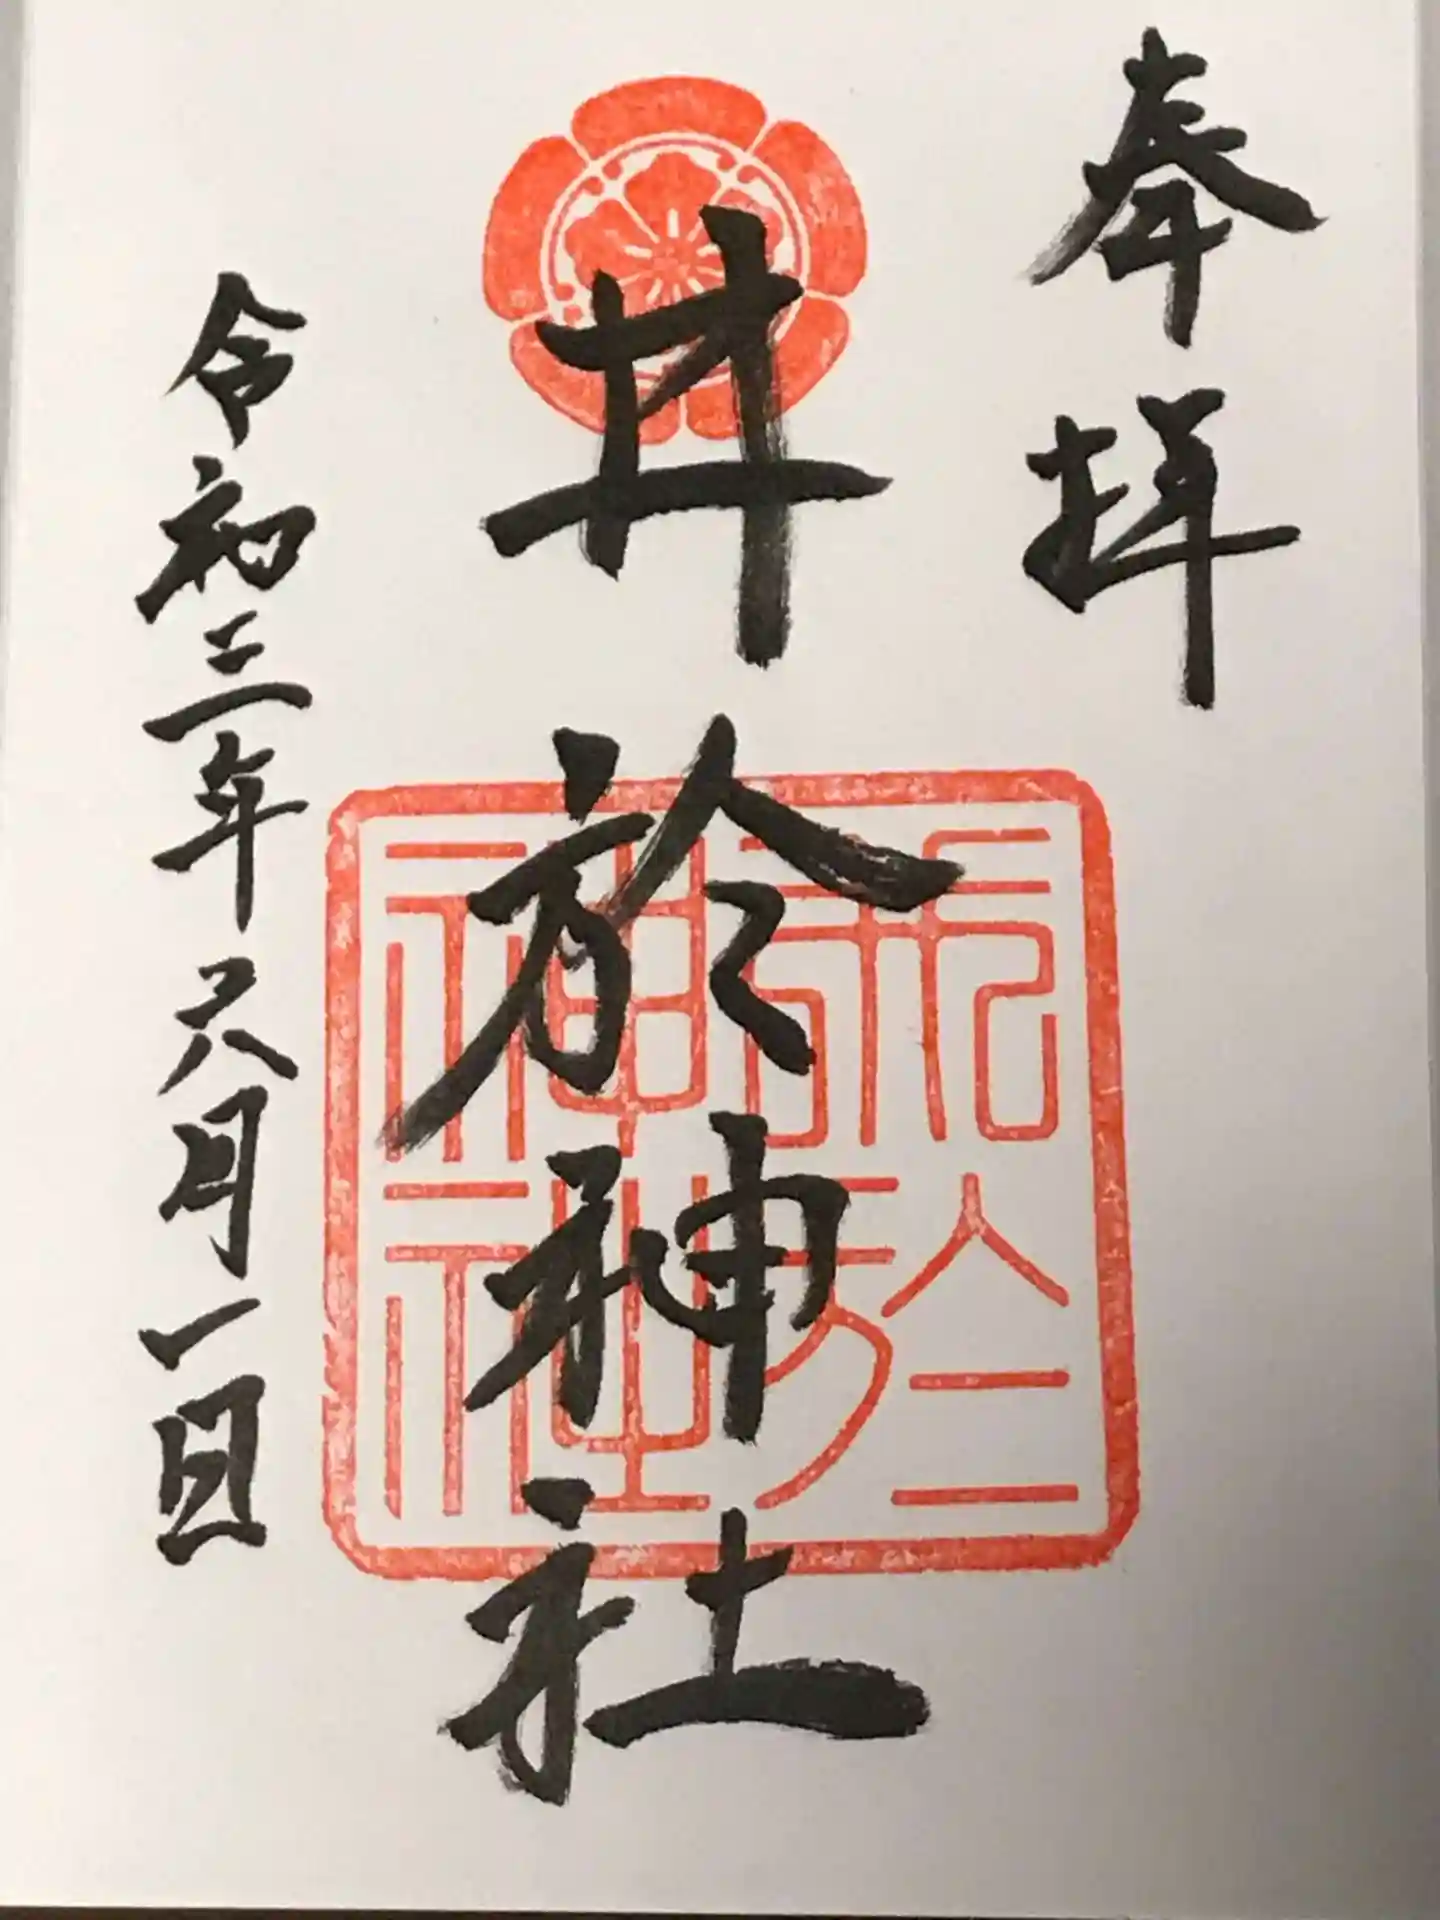 奉拝
井於神社
令和三年六月一日
於
神社